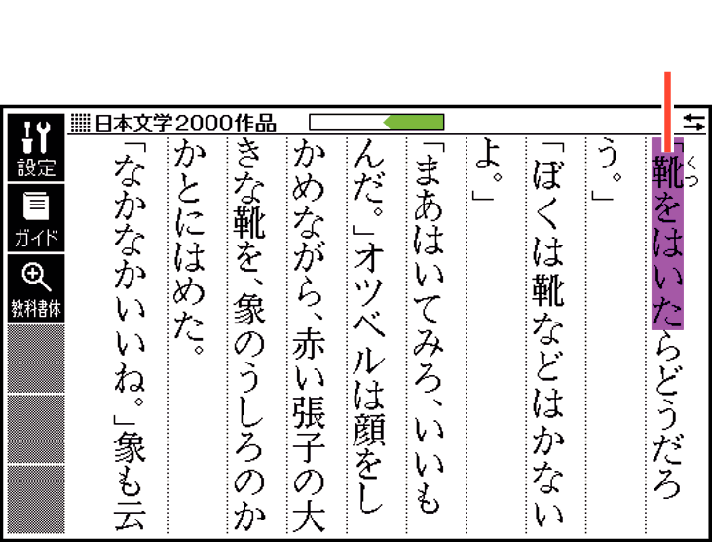 日本文学2000作品
設定
ガイド
教科書体
くつ
「靴をはいたらどうだろ
う。」
「ぼくは靴などはかない
よ。」
「まあはいてみろ、いいも
んだ。」オツベルは顔をし
かめながら、赤い張子の大
きな靴を、象のうしろのか
かとにはめた。
「なかなかいいね。」象も云